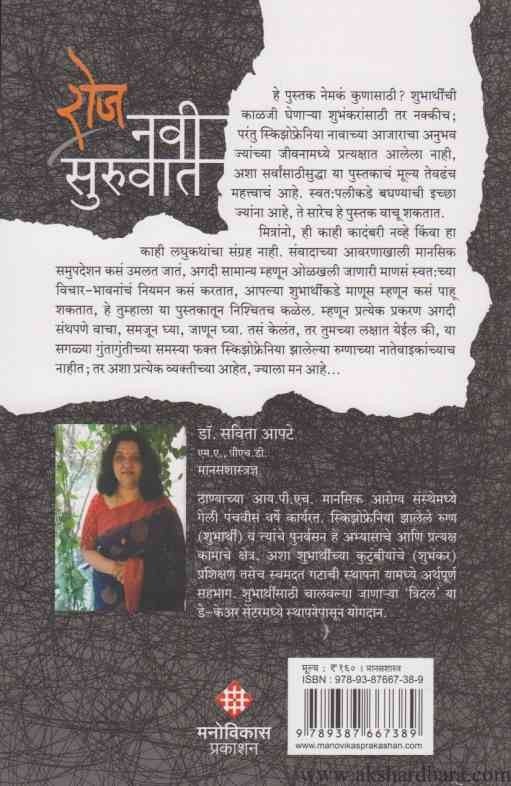 रोज
नवी
सुरुवात
हे पुस्तक नेमकं कुणासाठी? शुभार्थीची
काळजी घेणाऱ्या शुभंकरांसाठी तर नक्कीच;
परंतु स्किझोफ्रेनिया नावाच्या आजाराचा अनुभव
ज्यांच्या जीवनामध्ये प्रत्यक्षात आलेला नाही,
अशा सर्वांसाठीसुद्धा या पुस्तकाचं मूल्य तेवढंच
महत्त्वाचं आहे. स्वतःपलीकडे बघण्याची इच्छा
ज्यांना आहे, ते सारेच हे पुस्तक वाचू शकतात.
मित्रांनो, ही काही कादंबरी नव्हे किंवा हा
काही लघुकथांचा संग्रह नाही. संवादाच्या आवरणाखाली मानसिक
समुपदेशन कसं उमलत जातं, अगदी सामान्य म्हणून ओळखली जाणारी माणसं स्वतःच्या
विचार-भावनांचं नियमन कसं करतात, आपल्या शुभार्थीकडे माणूस म्हणून कसं पाहू
शकतात, हे तुम्हाला या पुस्तकातून निश्चितच कळेल. म्हणून प्रत्येक प्रकरण अगदी
संथपणे वाचा, समजून घ्या, जाणून घ्या. तसं केलंत, तर तुमच्या लक्षात येईल की, या
सगळ्या गुंतागुंतीच्या समस्या फक्त स्किझोफ्रेनिया झालेल्या रुग्णाच्या नातेवाइकांच्याच
नाहीत; तर अशा प्रत्येक व्यक्तीच्या आहेत, ज्याला मन आहे...
डॉ. सविता आपटे
एम.ए., पीएच.डी.
मानसशास्त्रज्ञ
ठाण्याच्या आय.पी.एच. मानसिक आरोग्य संस्थेमध्ये
गेली पंचवीस वर्षे कार्यरत. स्किझोफ्रेनिया झालेले रुग्ण
(शुभार्थी) व त्यांचे पुनर्वसन हे अभ्यासाचे आणि प्रत्यक्ष
कामाचे क्षेत्र. अशा शुभार्थीच्या कुटुंबीयांचे (शुभंकर)
प्रशिक्षण तसेच स्वमदत गटाची स्थापना यामध्ये अर्थपूर्ण
सहभाग. शुभार्थीसाठी चालवल्या जाणाऱ्या 'त्रिदल' या
डे-केअर सेंटरमध्ये स्थापनेपासून योगदान.
मूल्य : ₹१६० । मानसशास्त्र
ISBN : 978-93-87667-38-9
9 789387 667389
www.manovikasprakashan.com
मनोविकास
प्रकाशन
www.akshardhara.com